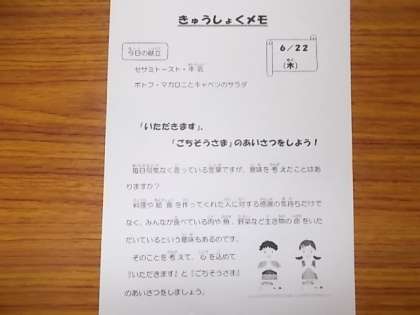 きゅうしょくメモ
6／22
（木）
今日の献立
セサミトースト・牛乳
ポトフ・マカロニとキャベツのサラダ
「いただきます」、
「ごちそうさま」のあいさつをしよう！
毎日何気なく言っている言葉ですが、意味を考えたことはあ
りますか？
料理や給食を作ってくれた人に対する感謝の気持ちだけで
なく、みんなが食べている肉や魚、野菜など生き物の命をいた
だいているという意味もあるのです。
そのことを考えて、心を込めて
『いただきます』と『ごちそうさま』
のあいさつをしましょう。